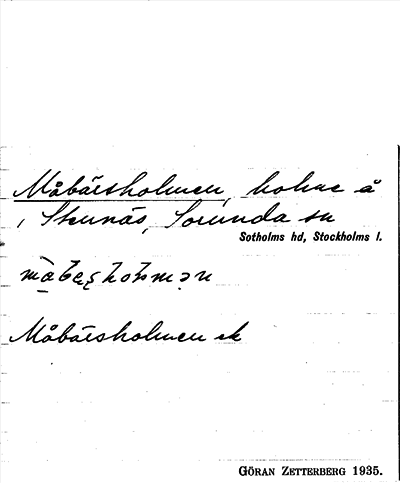 Måbärsholmen, holme å
i Stunäs, Sorunda sn
Sotholms hd, Stockholms l.
Måbärsholmen ek
GÖRAN ZETTERBERG 1935.